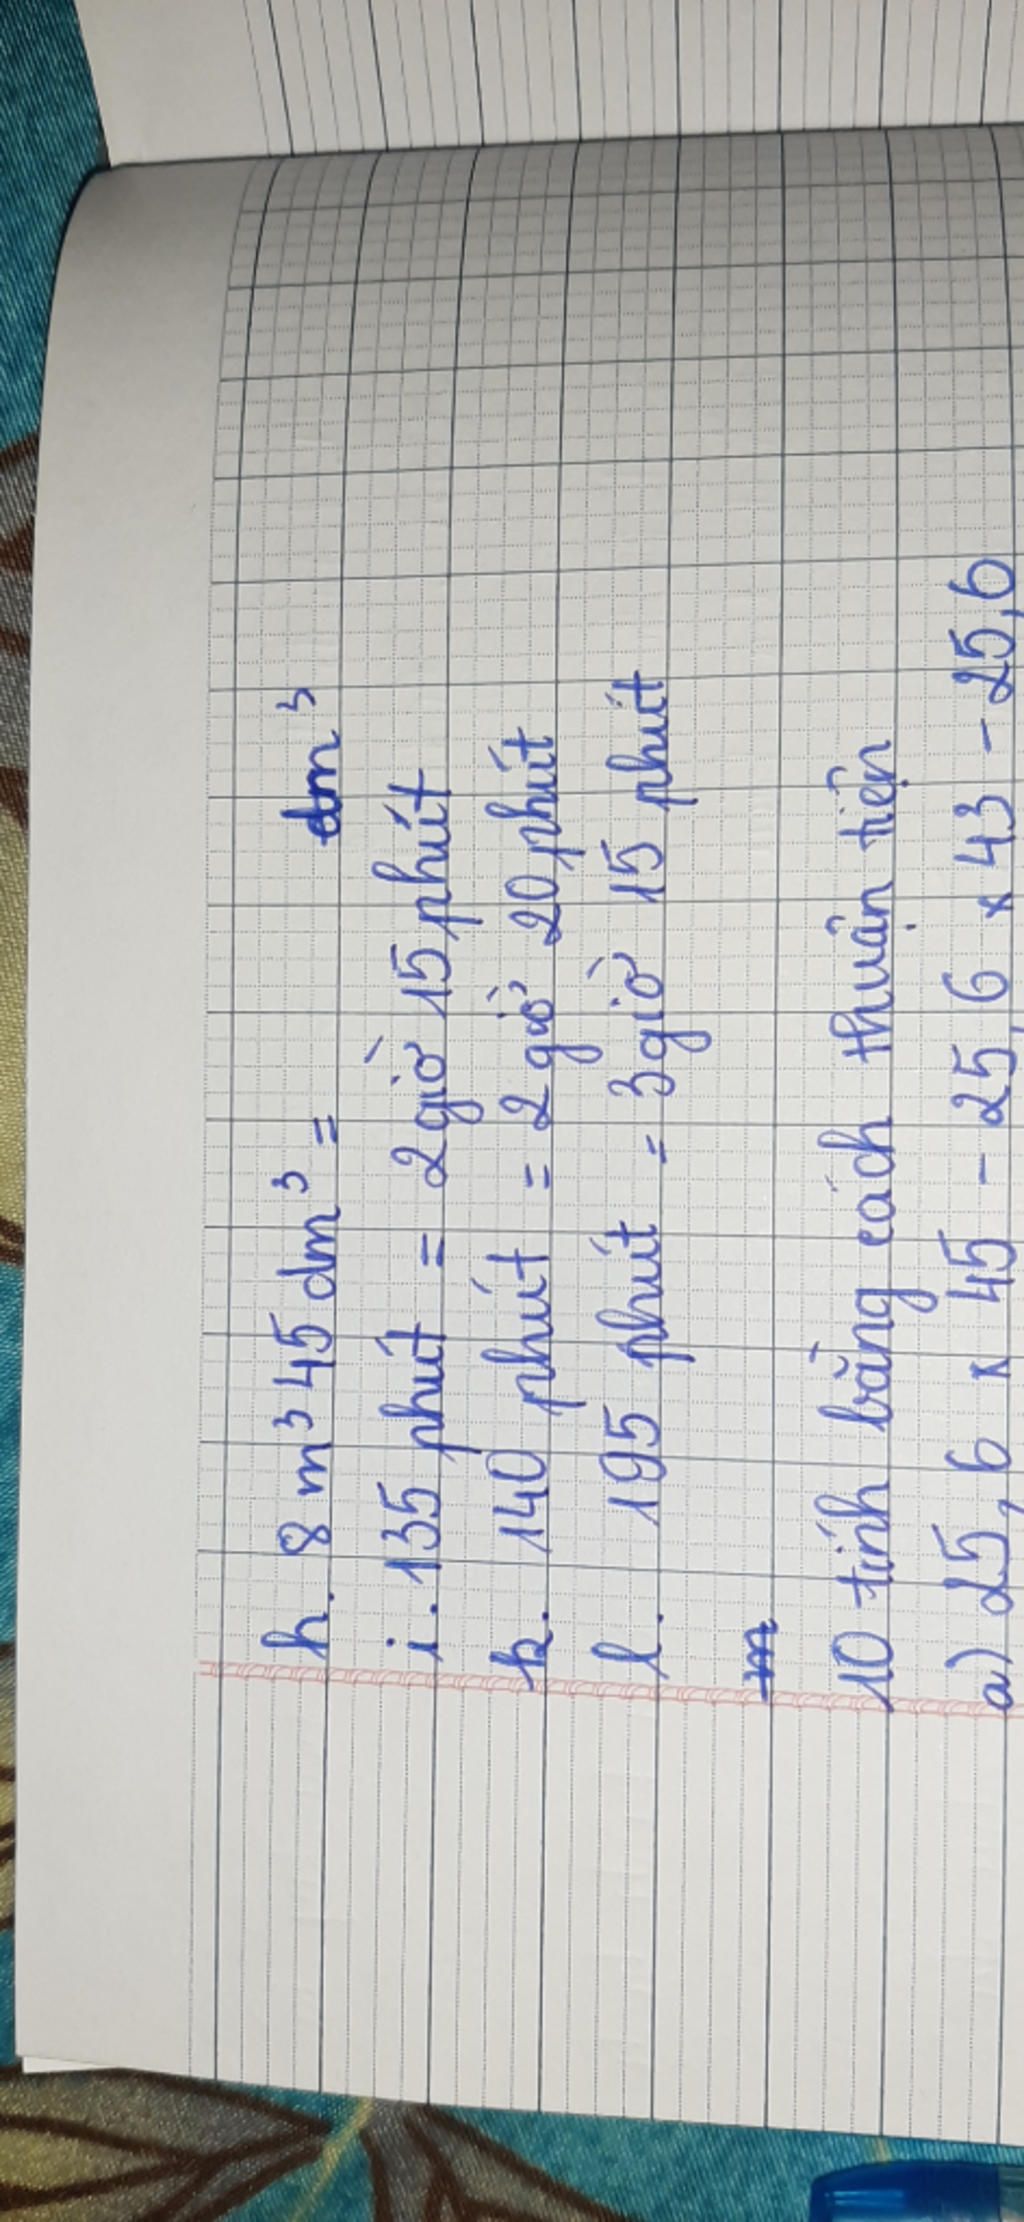 h. 8 m³ 45 dm³ = dm³
i. 135 phút = 2 giờ 15 phút
k. 140 phút = 2 giờ 20 phút
l. 195 phút = 3 giờ 15 phút
m
10 tính bằng cách thuận tiện
a) 25,6 x 45 - 25,6 x 43 - 25,6